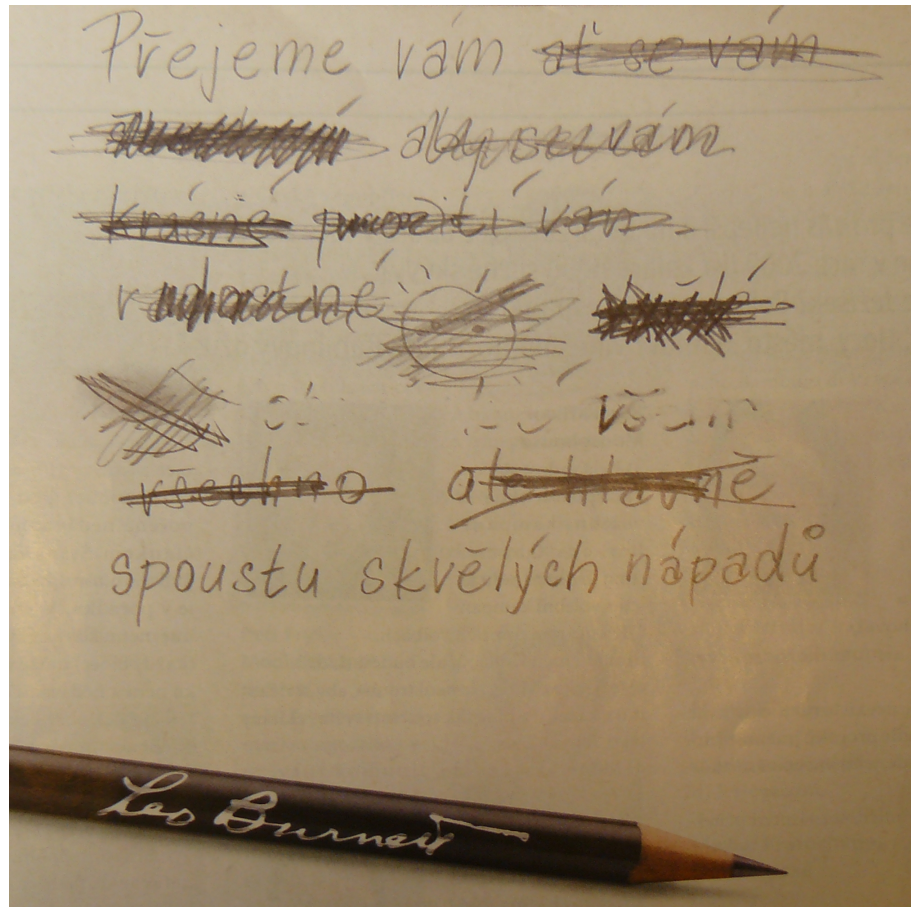 Přejeme vám ať se vám
aby se vám
krásné vám
v
všem
všechno ale hlavně
spoustu skvělých nápadů
Leo Burnett